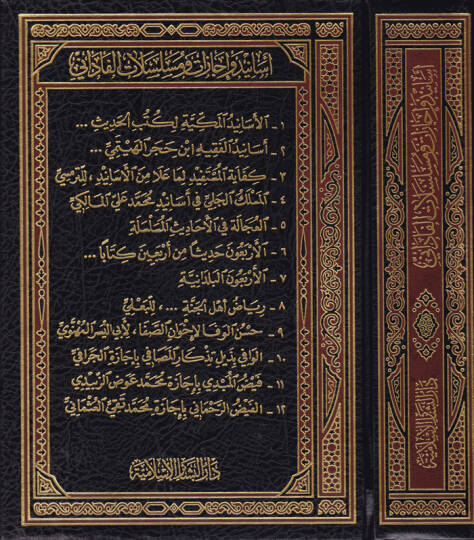 أسانيد وإجازات ومسلسلات الفاداني
١ - الأسانيد المكية لكتب الحديث ...
٢ - أسانيد الفقيه ابن حجر الهيتمي ...
٣ - كفاية المستفيد لما علا من الأسانيد ، للترمسي
٤ - المسلك الجلي في أسانيد محمد علي المالكي
٥ - العجالة في الأحاديث المسلسلة
٦ - الأربعون حديثاً من أربعين كتاباً ...
٧ - الأربعون البلدانية
٨ - رياض أهل الجنة ... ، للبعلي
٩ - حسن الوفا لإخوان الصفا ، لأبي اليسر المهنوي
١٠ - الوافي بذيل تذكار المصافي بإجازة الجرافي
١١ - فيض المبدي بإجازة محمد عوض الزبيدي
١٢ - الفيض الرحماني بإجازة محمد تقي العثماني
دار البشائر الإسلامية
أسانيد وإجازات ومسلسلات الفاداني
دار البشائر الإسلامية